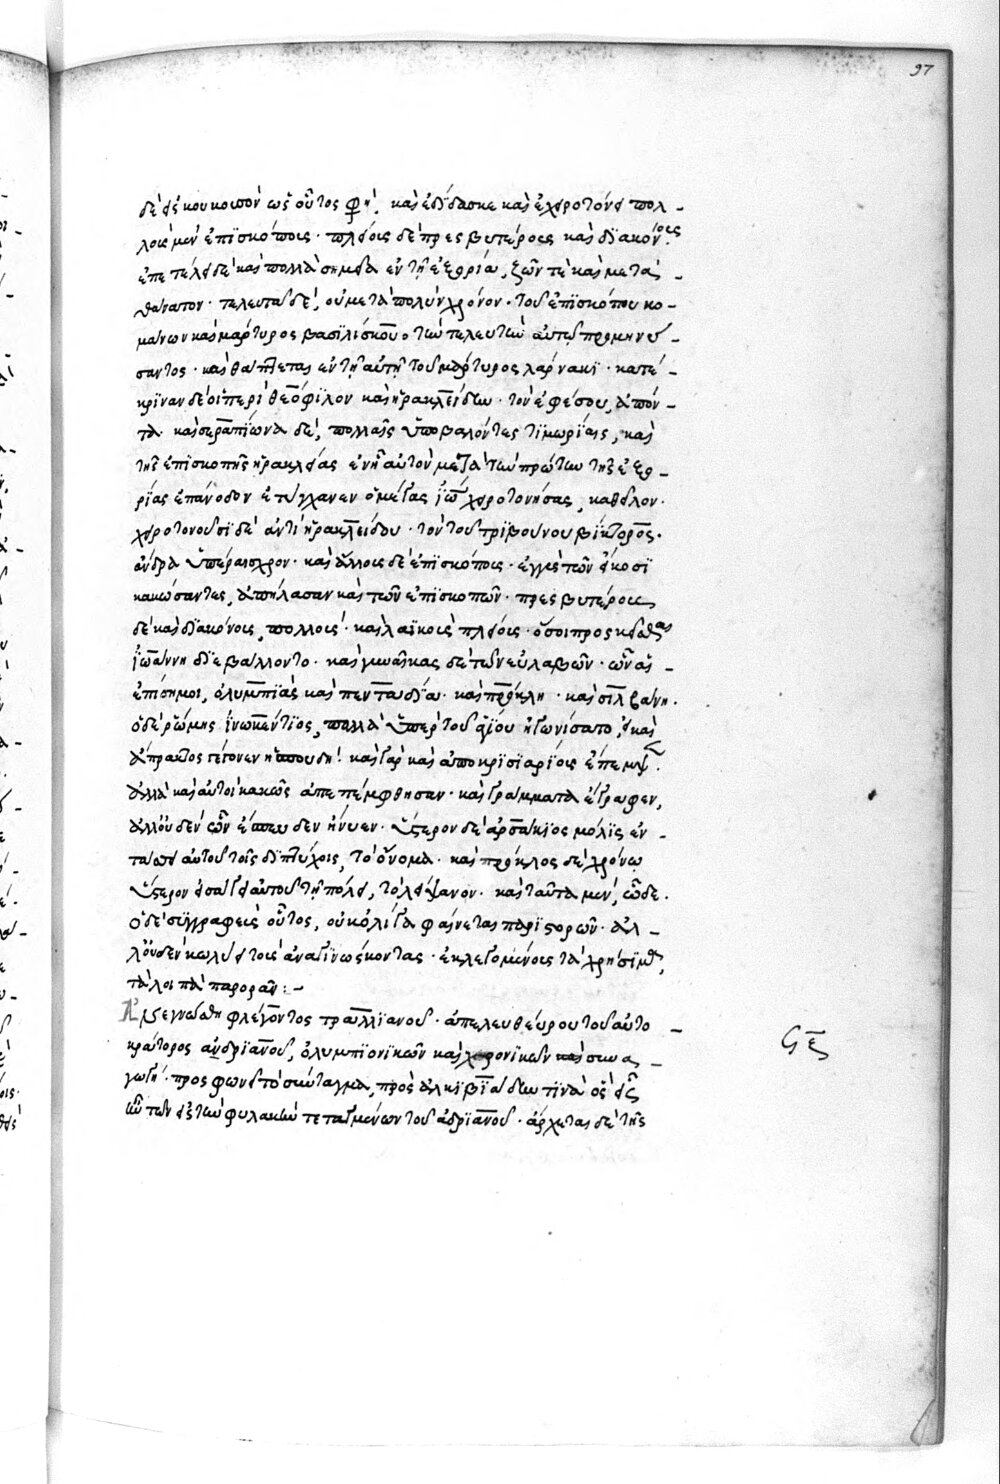 97
δὲ εἰς κουκουσὸν ὡς οὗτος φη. καὶ ἐδίδασκε καὶ ἐχειροτόνει πολ-
λοὺς μὲν ἐπισκόπους· πλείους δὲ πρεσβυτέρους καὶ διακόνους
ἐπετέλει δὲ καὶ πολλὰ σημεῖα ἐν τῇ ἐξορίᾳ, ζῶν τὲ καὶ μετὰ
θάνατον· τελευτᾶ δέ, οὐ μετὰ πολὺν χρόνον· τοῦ ἐπισκόπου κο-
μάνων καὶ μάρτυρος βασιλίσκου τὴν τελευτὴν αὐτῷ προμηνύ-
σαντος· καὶ θάπτεται ἐν τῇ αὐτῇ τοῦ μάρτυρος λάρνακι· κατέ-
κριναν δὲ οἱ περὶ θεόφιλον καὶ ἡρακλείδην· τὸν ἐφέσου, ἀπόν-
τα καὶ σεραπίωνα δέ, πολλαῖς ὑποβαλόντες τιμωρίαις, καὶ
τῆς ἐπισκοπῆς ἡρακλείας ἐν ᾗ αὐτὸν μετὰ τὴν πρώτην τῆς ἐξο-
ρίας ἐπάνοδον ἐτύγχανεν ὁ μέγας ἰω χειροτονήσας, καθεῖλον.
χειροτονοῦσι δὲ ἀντὶ ἡρακλείδου· τὸν τοῦ τριβούνου βίκτορος·
ἄνδρα ὑπέραισχρον· καὶ ἄλλους δὲ ἐπισκόπους· ἐγγὺς τῶν εἴκοσι
κακώσαντες, ἀπήλασαν καὶ τῶν ἐπισκοπῶν· πρεσβυτέρους
δὲ καὶ διακόνους, πολλούς· καὶ λαϊκοὺς πλείους· ὅσοι προσκεῖσθαι
ἰωάννῃ διεβάλλοντο· καὶ γυναῖκας δὲ τῶν εὐλαβῶν· ὧν αἱ
ἐπίσημοι, ὀλυμπιὰς καὶ πενταδία· καὶ πρόκλη· καὶ σιλβανή.
ὁ δὲ ῥώμης ἰνωκέντιος, πολλὰ ὑπὲρ τοῦ ἁγίου ἠγωνίσατο, εἰ καὶ
ἄπρακτος γέγονεν ἡ σπουδή· καὶ γὰρ καὶ ἀποκρισιαρίους ἔπεμψε·
ἀλλὰ καὶ αὐτοὶ κακῶς ἀπεπέμφθησαν· καὶ γράμματα ἔγραφεν,
ἀλλ' οὐδὲν ὧν ἔσπευδεν ἤνυεν· ὕστερον δὲ ἀρσάκιος μόλις ἐν-
τάττει αὐτοῦ τοῖς διπτύχοις, τὸ ὄνομα· καὶ πρόκλος δὲ χρόνῳ
ὕστερον εἰσάγει αὐτοῦ τῇ πόλει, τὸ λείψανον· καὶ ταῦτα μέν, ὧδε.
Ὁ δὲ συγγραφεὺς οὗτος, οὐκ ὀλίγα φαίνεται παριστορῶν· ἀλ-
λ' οὐδὲν κωλύει τοὺς ἀναγινώσκοντας· ἐκλεγομένους τὰ χρήσιμα,
τὰ λοιπὰ παρορᾶν:-
Ἀνεγνώσθη φλέγοντος τραλλιανοῦ· ἀπελευθέρου τοῦ αὐτο-
κράτορος ἀνδριανοῦ, ὀλυμπιονικῶν καὶ χρονικῶν συνα-
γωγή· προσφωνεῖ τὸ σύνταγμα, πρὸς ἀλκιβιάδην τινὰ ὃς εἷς
ἦν τῶν εἰς τὴν φυλακὴν τεταγμένων τοῦ ἀδριανοῦ· ἄρχεται δὲ τῆς